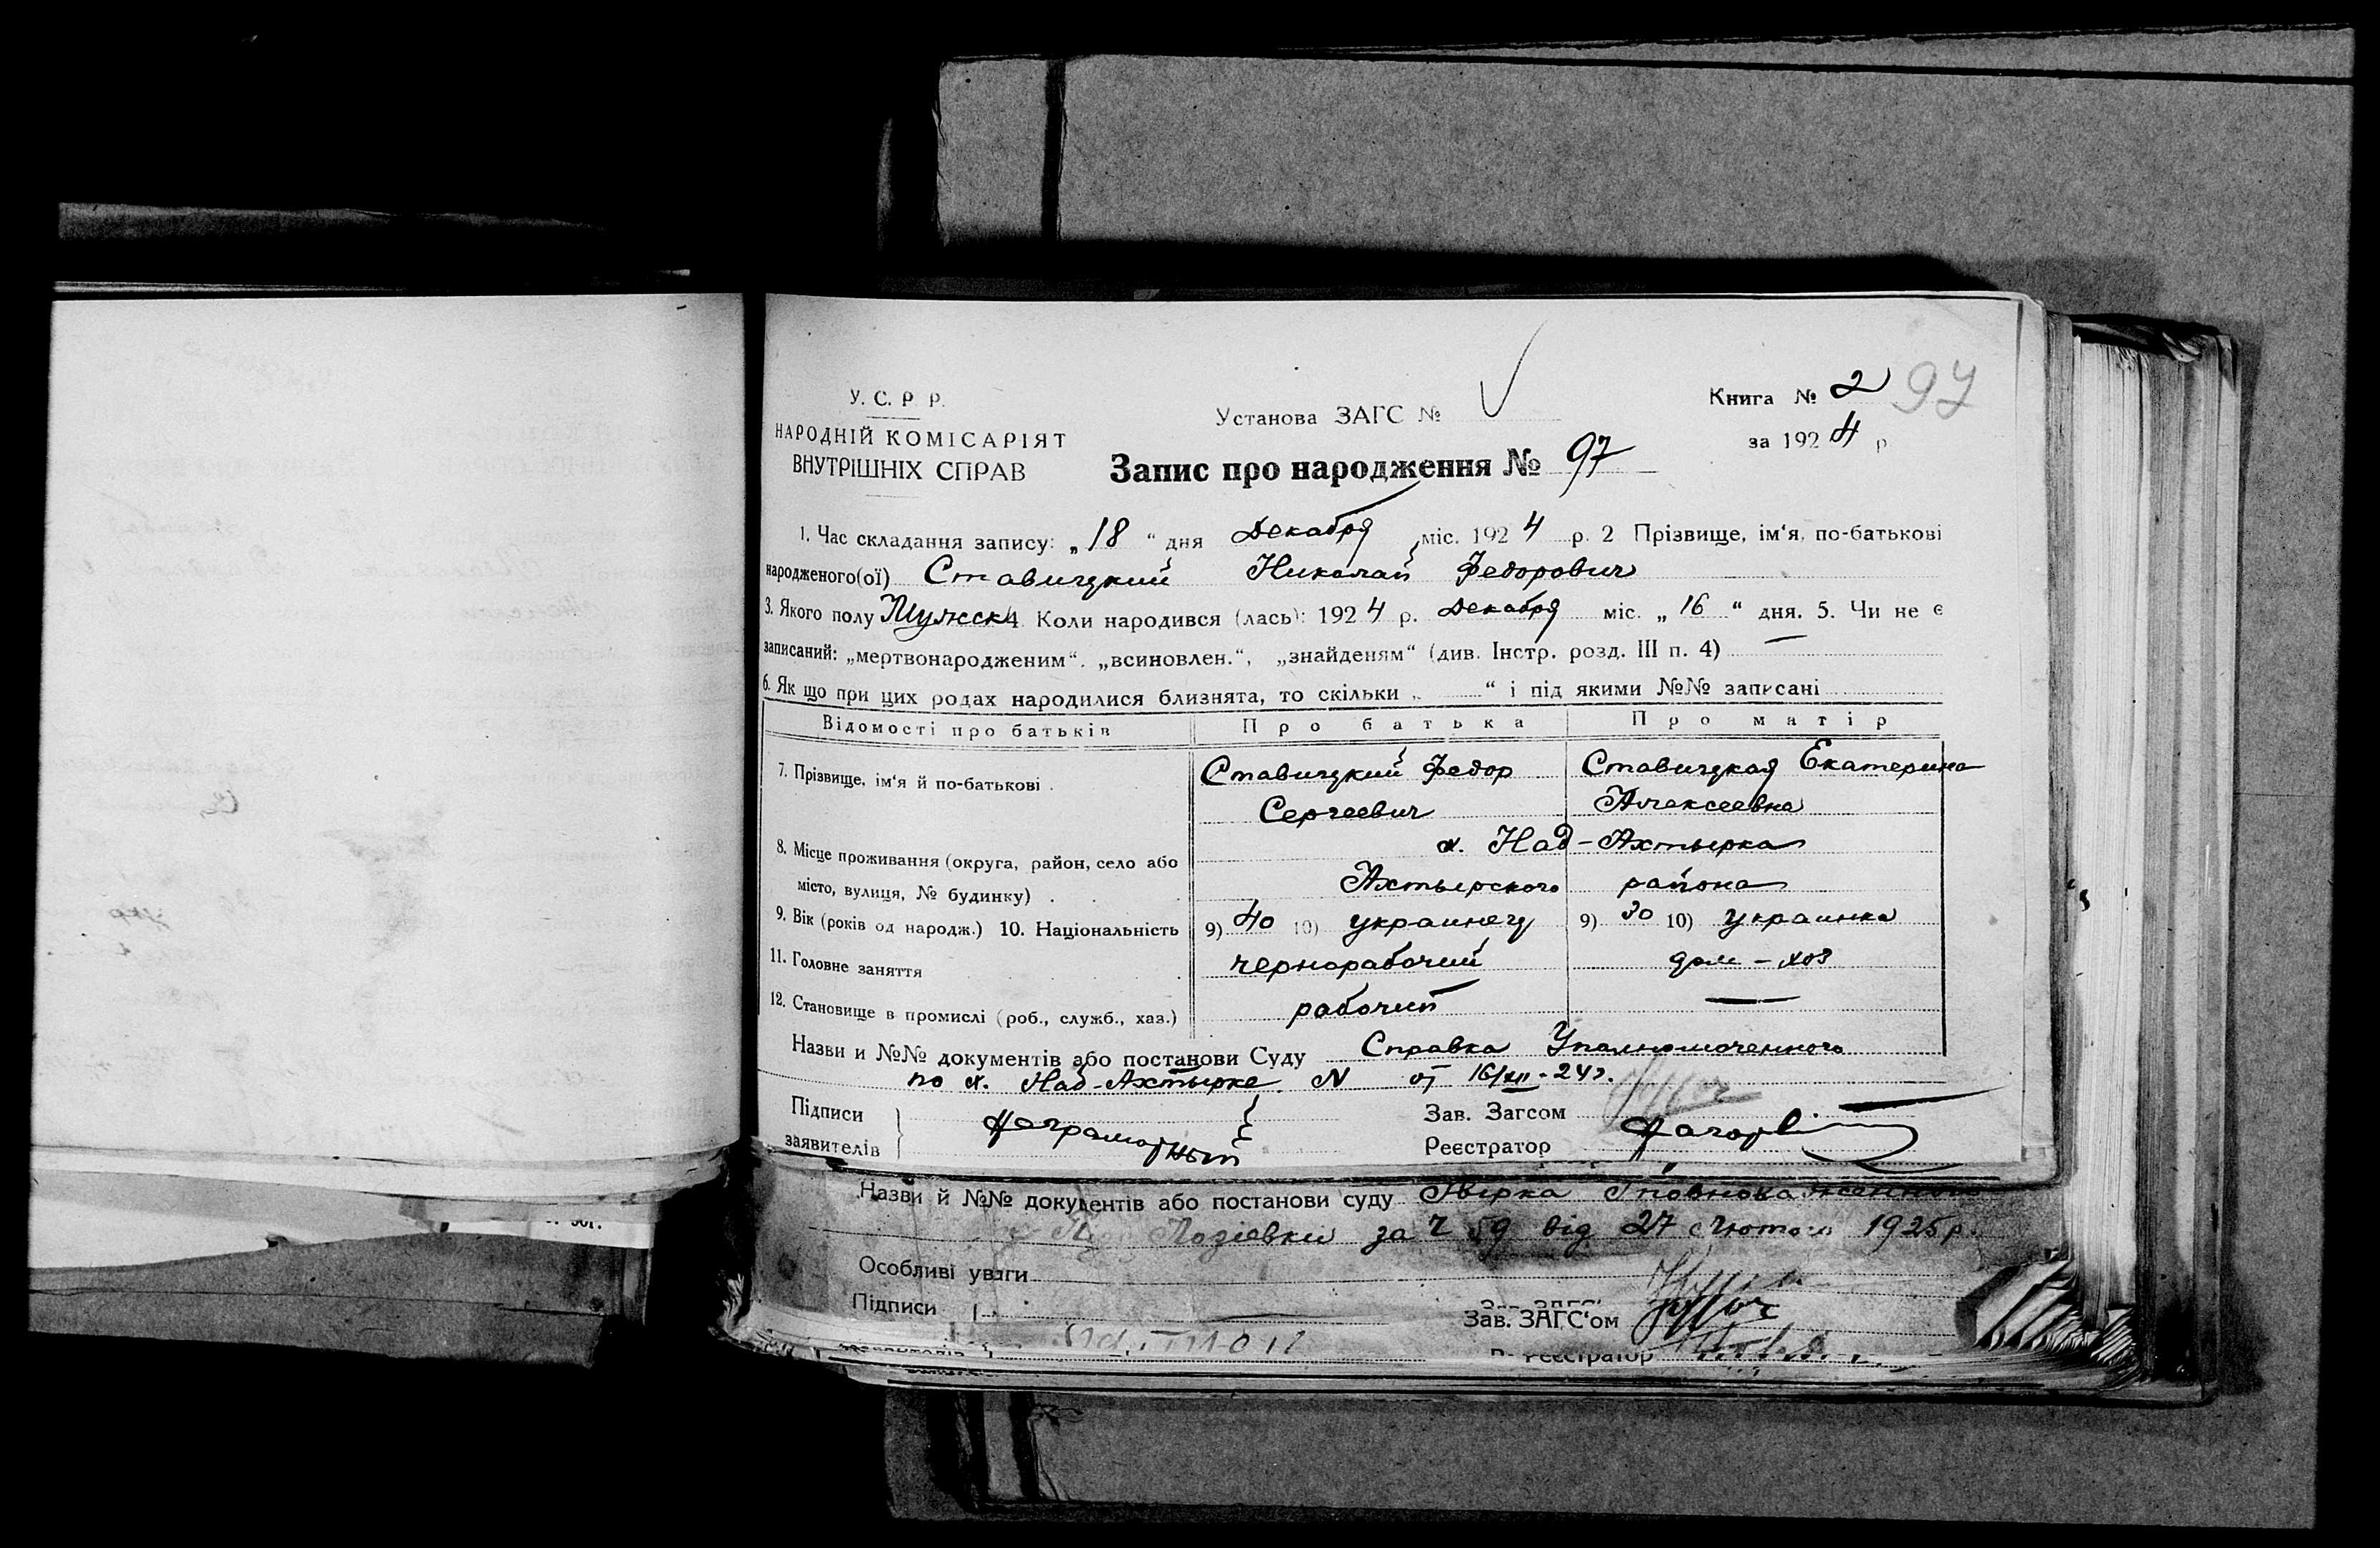 У. С. Р. Р.
НАРОДНІЙ КОМІСАРІЯТ
ВНУТРІШНІХ СПРАВ
Установа ЗАГС №
Книга № 2 97
за 1924 р
Запис про народження № 97
1. Час складання запису: „18“ дня Декабря міс. 1924 р. 2 Прізвище, ім‘я, по-батькові
народженого(ої) Ставицкий Николай Федорович
3. Якого полу Мужск 4. Коли народився (лась): 1924 р. Декабря міс. „16“ дня. 5. Чи не є
записаний: „мертвонародженим“. „всиновлен.“, „знайденям“ (див. Інстр. розд. III п. 4) —
6. Як що при цих родах народилися близнята, то скільки „ “ і під якими №№ записані
Відомості про батьків Про батька Про матір
7. Прізвище, ім‘я й по-батькові . Ставицкий Федор Ставицкая Екатерина
Сергеевич Алексеевна
8. Місце проживання (округа, район, село або х. Над-Ахтырка
місто, вулиця, № будинку) . Ахтырского района
9. Вік (років од народж.) 10. Національність 9) 40 10) украинец 9) 30 10) украинка
11. Головне заняття чернорабочий дом-хоз
12. Становище в промислі (роб., служб., хаз.) рабочий —
Назви и №№ документів або постанови Суду Справка Уполномоченного
по х. Над-Ахтырке N от 16/XII-24г.
Підписи
заявителів
неграмотный
Зав. Загсом
Реєстратор
Назви й №№ документів або постанови суду
за Ч 59 від 27 Лютого 1925 р.
Особливі уваги
Підписи
Зав. ЗАГС‘ом
Реєстратор